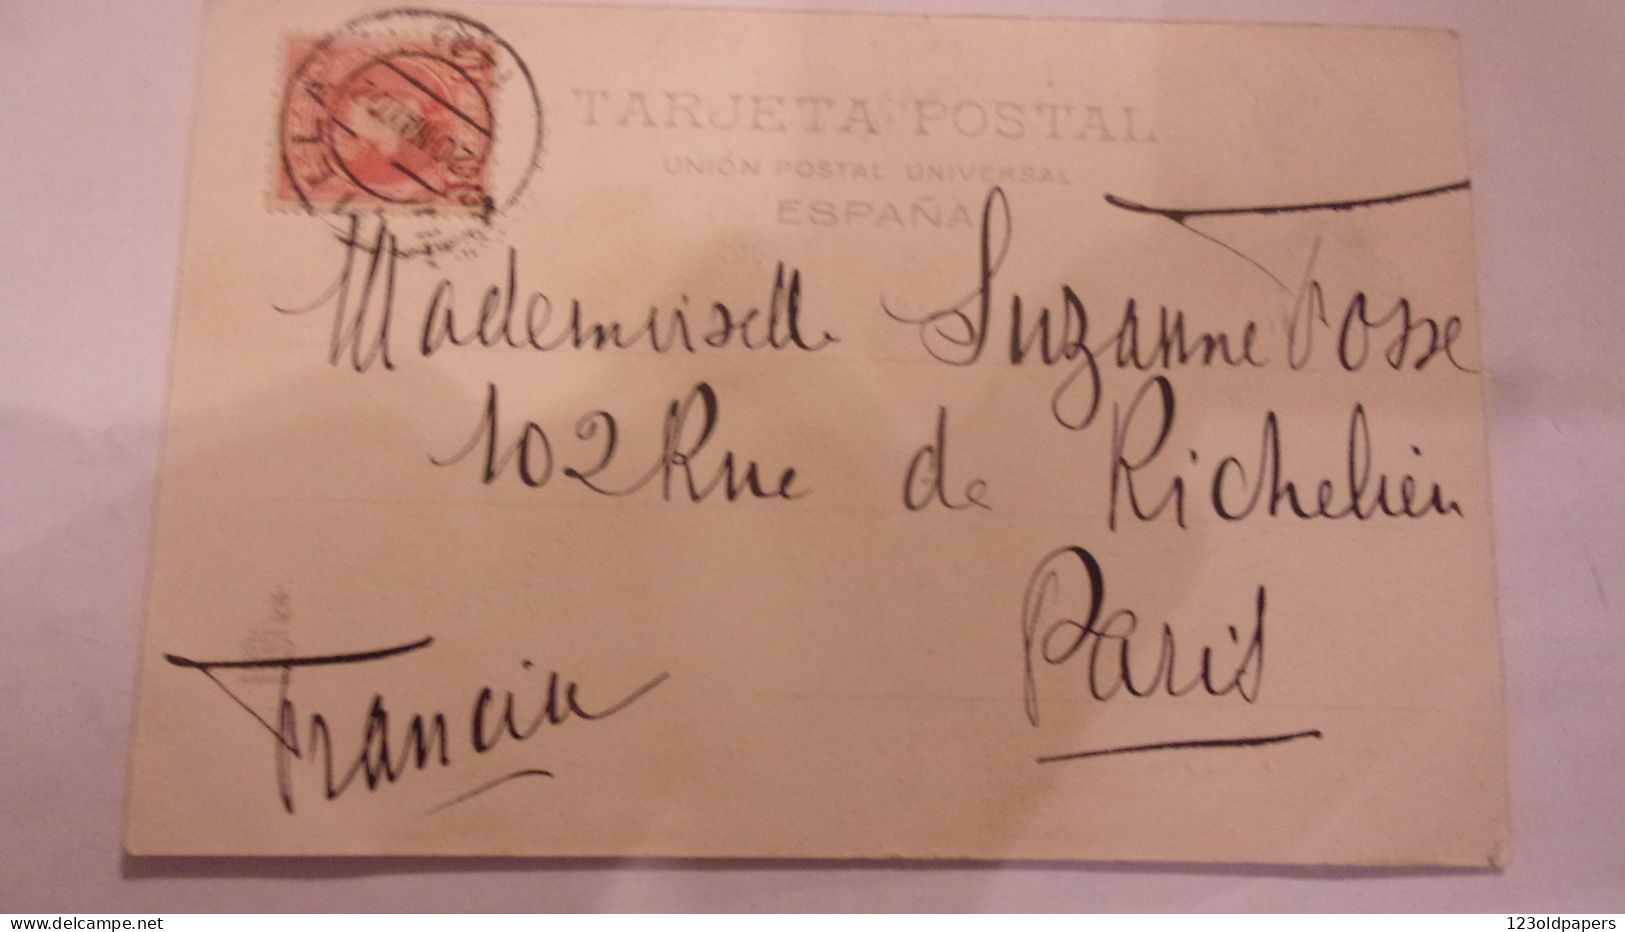 TARJETA POSTAL
UNIÓN POSTAL UNIVERSAL
ESPAÑA
Mademoiselle Suzanne Fosse
102 Rue de Richelieu
Paris
123oldpapers